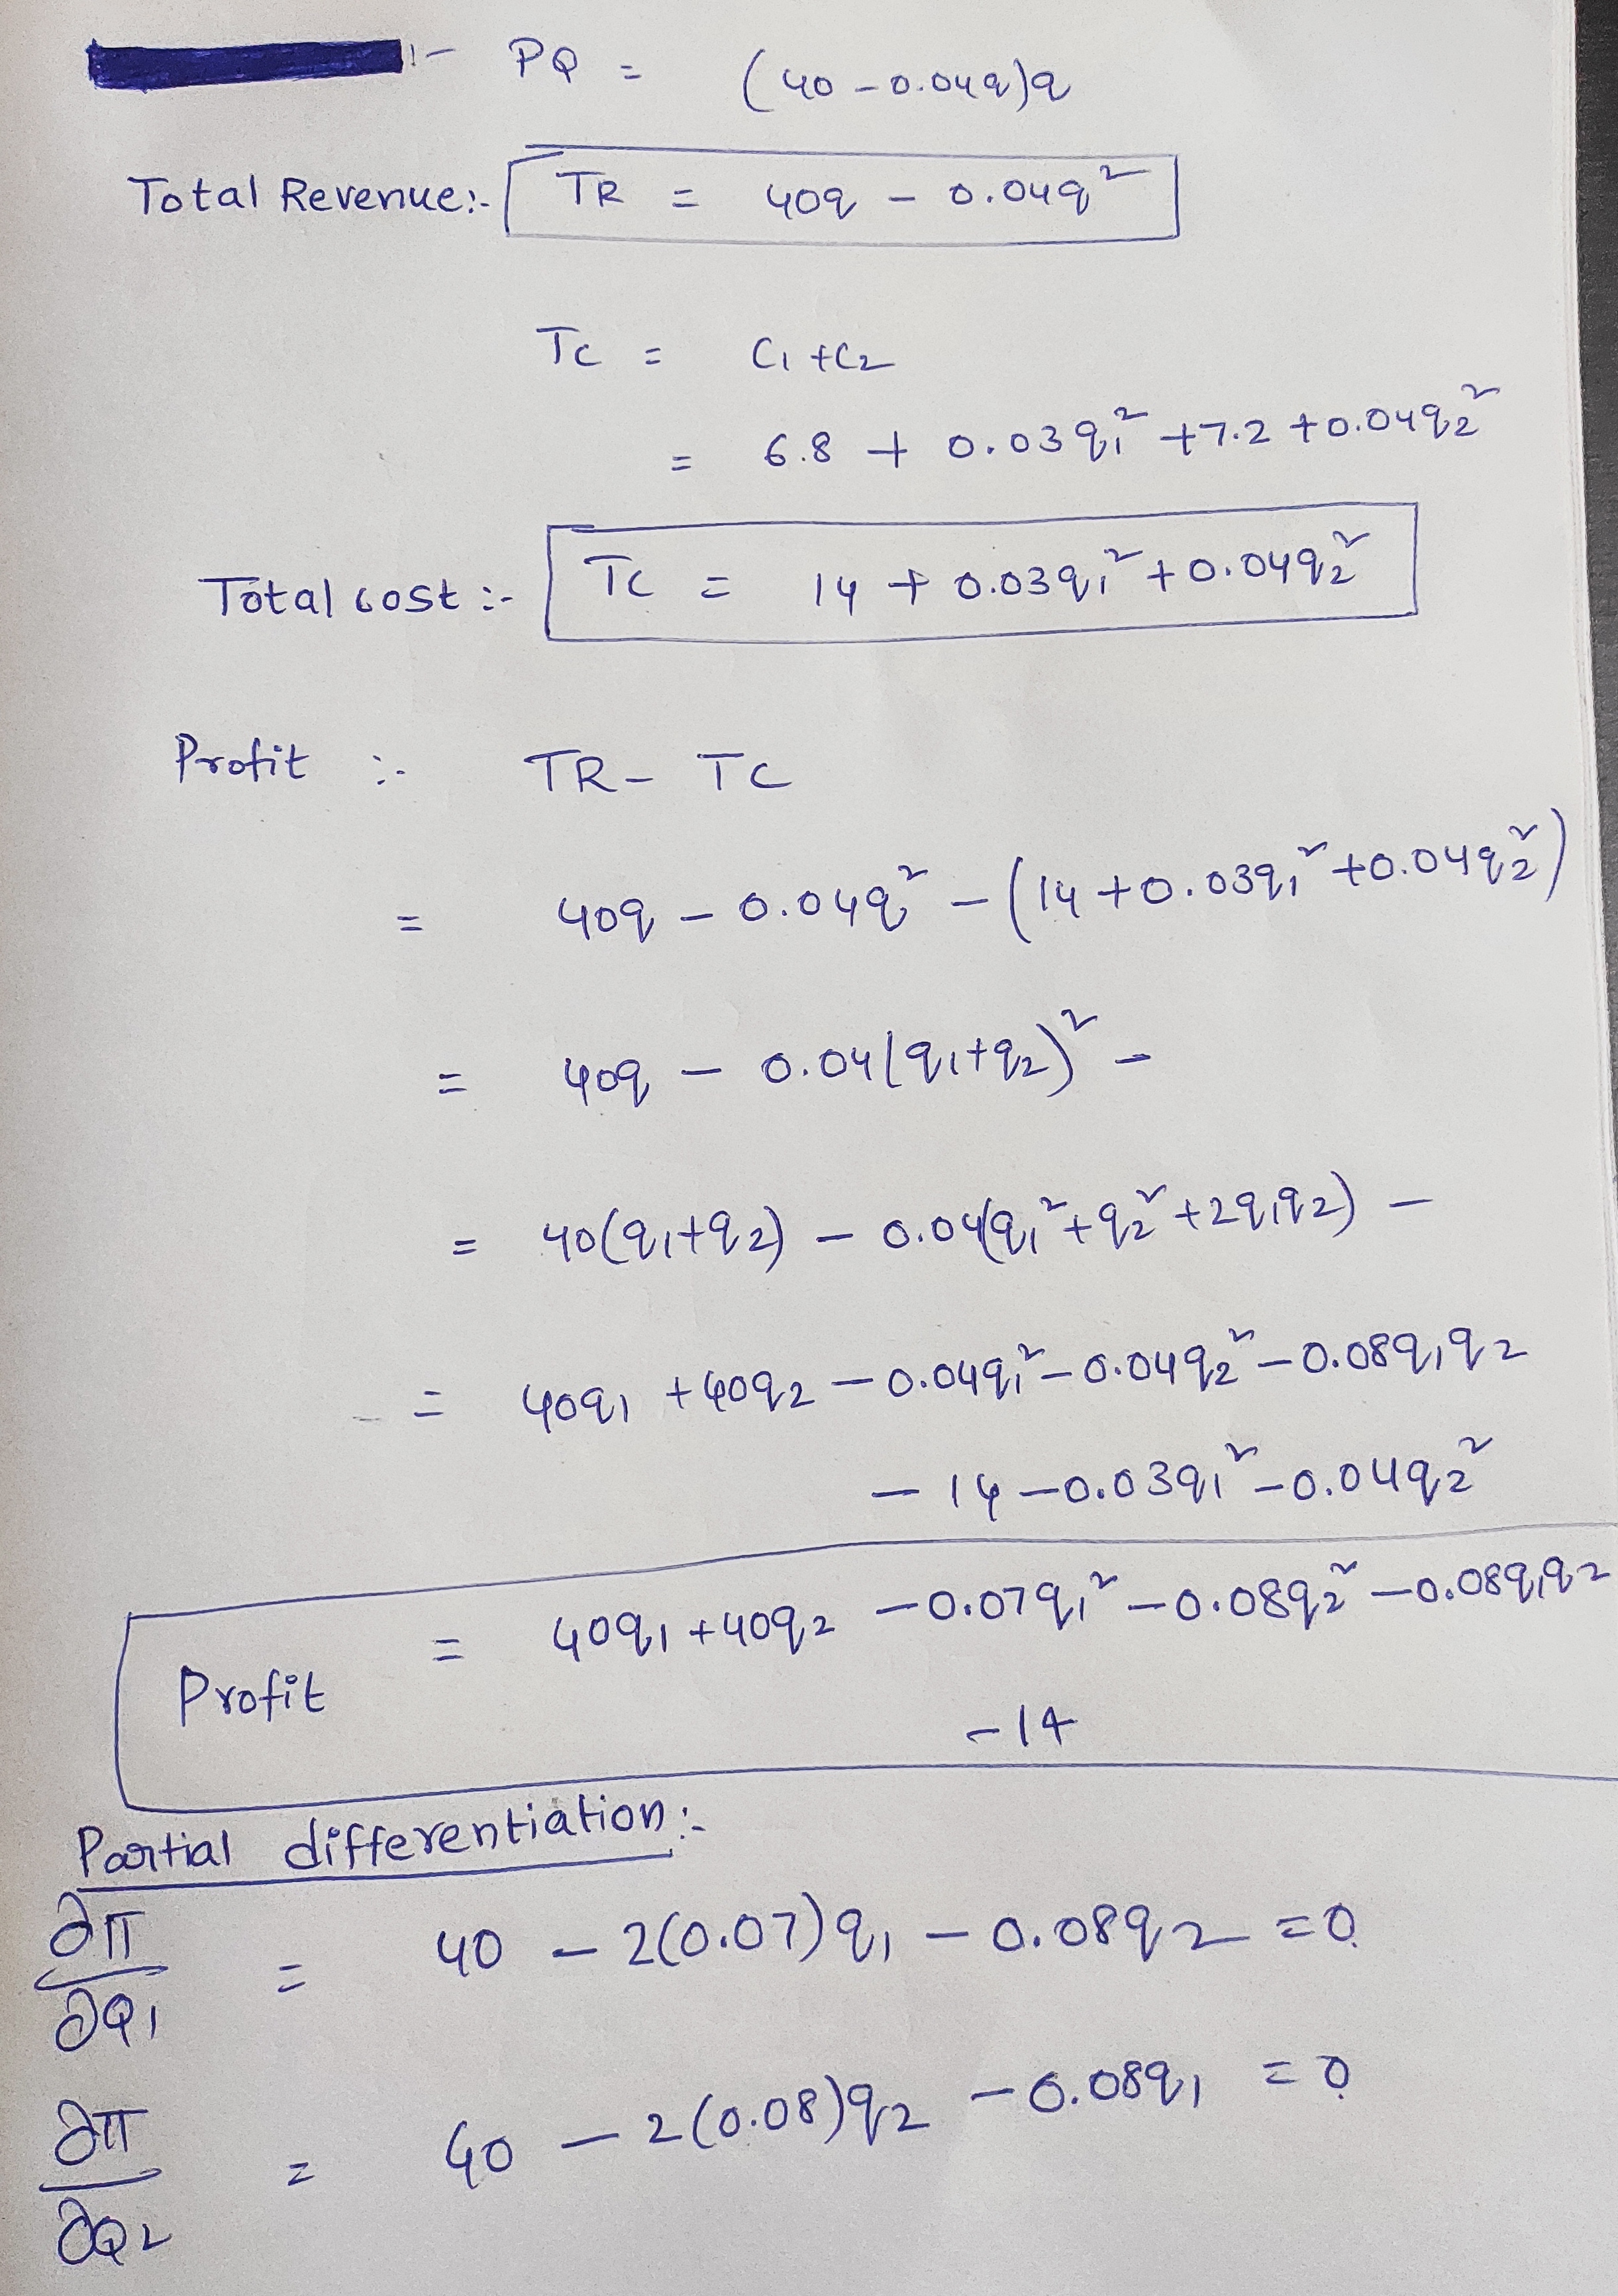 :- PQ = (40 - 0.04q)q
Total Revenue:- TR = 40q - 0.04q²
TC = C1 + C2
= 6.8 + 0.03q₁² + 7.2 + 0.04q₂²
Total cost :- TC = 14 + 0.03q₁² + 0.04q₂²
Profit :- TR - TC
= 40q - 0.04q² - (14 + 0.03q₁² + 0.04q₂²)
= 40q - 0.04(q₁+q₂)² -
= 40(q₁+q₂) - 0.04(q₁² + q₂² + 2q₁q₂) -
= 40q₁ + 40q₂ - 0.04q₁² - 0.04q₂² - 0.08q₁q₂
- 14 - 0.03q₁² - 0.04q₂²
Profit = 40q₁ + 40q₂ - 0.07q₁² - 0.08q₂² - 0.08q₁q₂
- 14
Partial differentiation:-
∂π/∂Q₁ = 40 - 2(0.07)q₁ - 0.08q₂ = 0
∂π/∂Q₂ = 40 - 2(0.08)q₂ - 0.08q₁ = 0